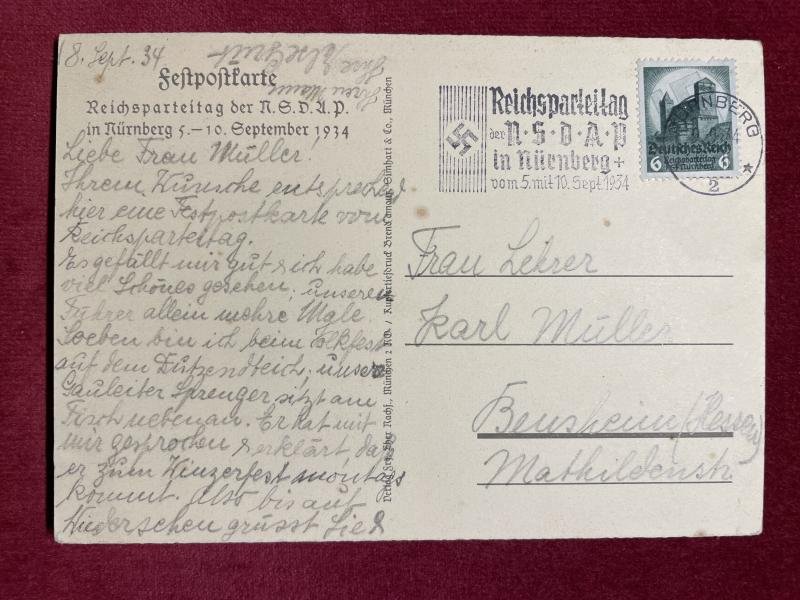 8. Sept. 34
Festpostkarte
Reichsparteitag der N.S.D.A.P.
in Nürnberg 5.–10. September 1934
Liebe Frau Müller!
Ihrem Wunsche entsprechend
hier eine Festpostkarte vom
Reichsparteitag.
Es gefällt mir gut & ich habe
viel Schönes gesehen, unseren
Führer allein mehre Male.
Soeben bin ich beim Volkfest
auf dem Dutzendteich, unser
Gauleiter Sprenger sitzt am
Tisch nebenan. Er hat mit
mir gesprochen & erklärt, daß
er zum Winzerfest montags
kommt. Also bis auf
Wiedersehen grüsst Sie &
Ihren Mann
Ihre
Verlag Frz. Eher Nachf., München 2 NO. / Kupfertiefdruck Brend'amour, Simhart & Co., München
Reichsparteitag
der N·S·D·A·P
in Nürnberg +
vom 5. mit 10. Sept. 1934
NÜRNBERG
2
Deutsches Reich
6 Reichsparteitag 6
Nürnberg
Frau Lehrer
Karl Müller
Bensheim (Hessen)
Mathildenstr.